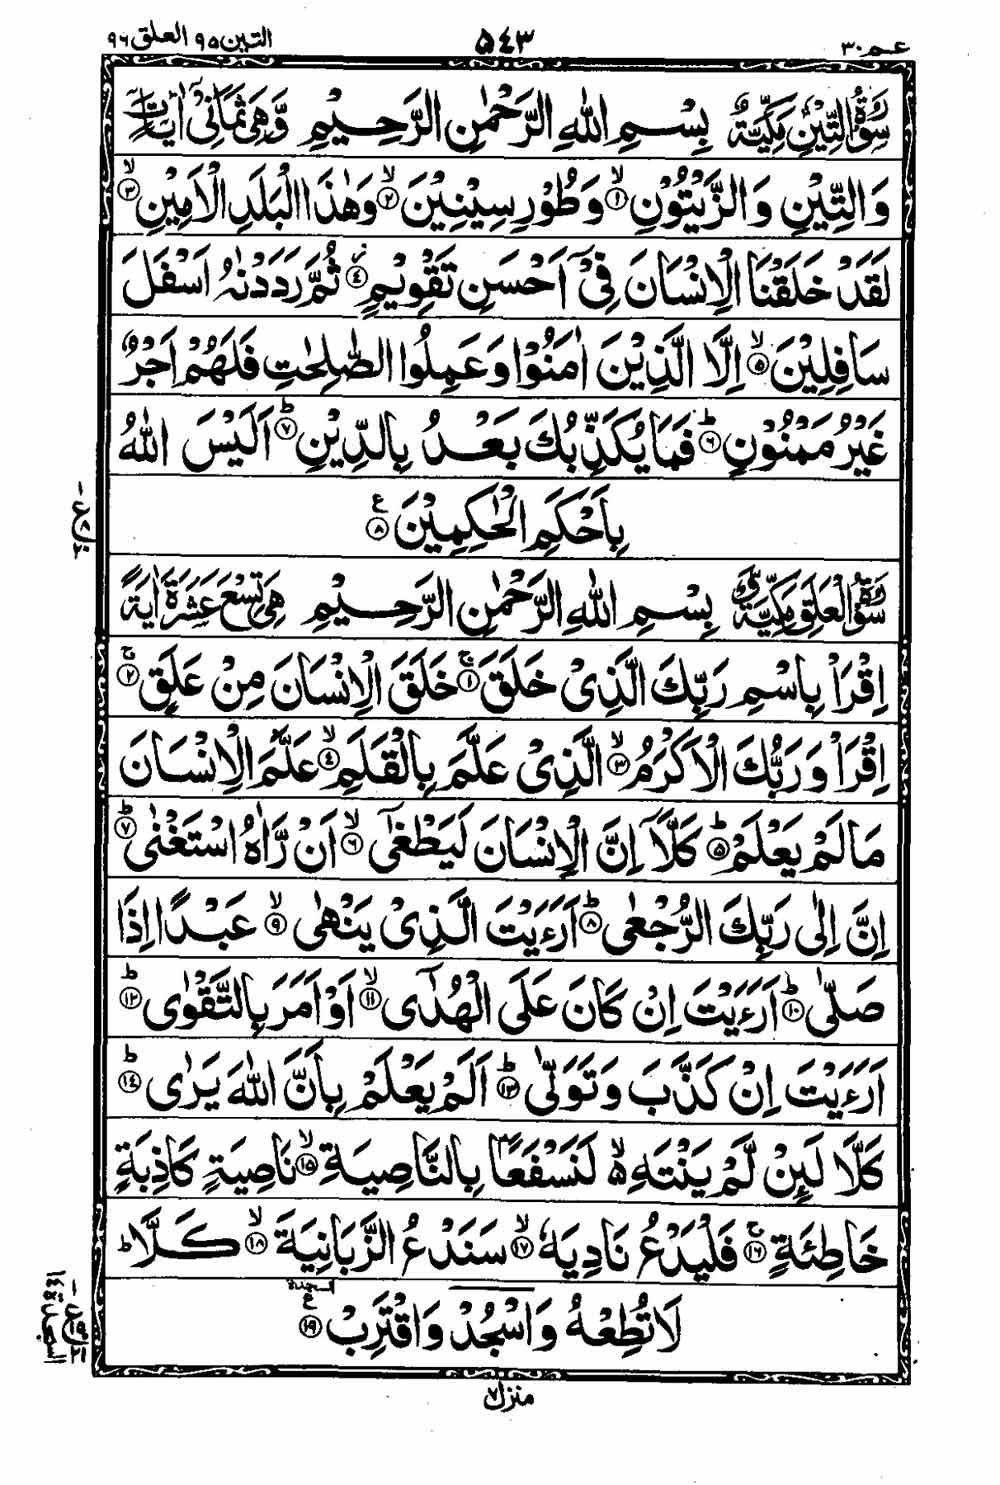 عـم ٣٠ ٥٤٣ التين ٩٥ العلق ٩٦
سُوْرَةُ التِّيْنِ مَكِّيَّةٌ بِسْمِ اللّٰهِ الرَّحْمٰنِ الرَّحِيْمِ وَّهِيَ ثَمَانِيْ اٰيَاتٍ
وَالتِّيْنِ وَالزَّيْتُوْنِ ۙ﴿١﴾ وَطُوْرِ سِيْنِيْنَ ۙ﴿٢﴾ وَهٰذَا الْبَلَدِ الْاَمِيْنِ ۙ﴿٣﴾
لَقَدْ خَلَقْنَا الْاِنْسَانَ فِيْٓ اَحْسَنِ تَقْوِيْمٍ ۫﴿٤﴾ ثُمَّ رَدَدْنٰهُ اَسْفَلَ
سَافِلِيْنَ ۙ﴿٥﴾ اِلَّا الَّذِيْنَ اٰمَنُوْا وَعَمِلُوا الصّٰلِحٰتِ فَلَهُمْ اَجْرٌ
غَيْرُ مَمْنُوْنٍ ؕ﴿٦﴾ فَمَا يُكَذِّبُكَ بَعْدُ بِالدِّيْنِ ؕ﴿٧﴾ اَلَيْسَ اللّٰهُ
بِاَحْكَمِ الْحٰكِمِيْنَ ﴿٨﴾ ع
سُوْرَةُ الْعَلَقِ مَكِّيَّةٌ وَّ بِسْمِ اللّٰهِ الرَّحْمٰنِ الرَّحِيْمِ هِيَ تِسْعَ عَشَرَةَ اٰيَةً
اِقْرَاْ بِاسْمِ رَبِّكَ الَّذِيْ خَلَقَ ۚ﴿١﴾ خَلَقَ الْاِنْسَانَ مِنْ عَلَقٍ ۚ﴿٢﴾
اِقْرَاْ وَرَبُّكَ الْاَكْرَمُ ۙ﴿٣﴾ الَّذِيْ عَلَّمَ بِالْقَلَمِ ۙ﴿٤﴾ عَلَّمَ الْاِنْسَانَ
مَا لَمْ يَعْلَمْ ؕ﴿٥﴾ كَلَّآ اِنَّ الْاِنْسَانَ لَيَطْغٰٓى ۙ﴿٦﴾ اَنْ رَّاٰهُ اسْتَغْنٰى ؕ﴿٧﴾
اِنَّ اِلٰى رَبِّكَ الرُّجْعٰى ؕ﴿٨﴾ اَرَءَيْتَ الَّذِيْ يَنْهٰى ۙ﴿٩﴾ عَبْدًا اِذَا
صَلّٰى ؕ﴿١٠﴾ اَرَءَيْتَ اِنْ كَانَ عَلَى الْهُدٰٓى ۙ﴿١١﴾ اَوْ اَمَرَ بِالتَّقْوٰى ؕ﴿١٢﴾
اَرَءَيْتَ اِنْ كَذَّبَ وَتَوَلّٰى ؕ﴿١٣﴾ اَلَمْ يَعْلَمْ بِاَنَّ اللّٰهَ يَرٰى ؕ﴿١٤﴾
كَلَّا لَىِٕنْ لَّمْ يَنْتَهِ ۙ۬ لَنَسْفَعًۢا بِالنَّاصِيَةِ ۙ﴿١٥﴾ نَاصِيَةٍ كَاذِبَةٍ
خَاطِئَةٍ ۚ﴿١٦﴾ فَلْيَدْعُ نَادِيَهٗ ۙ﴿١٧﴾ سَنَدْعُ الزَّبَانِيَةَ ۙ﴿١٨﴾ كَلَّا ؕ
لَا تُطِعْهُ وَاسْجُدْ وَاقْتَرِبْ ﴿١٩﴾ السجدة ع
منزل ٧